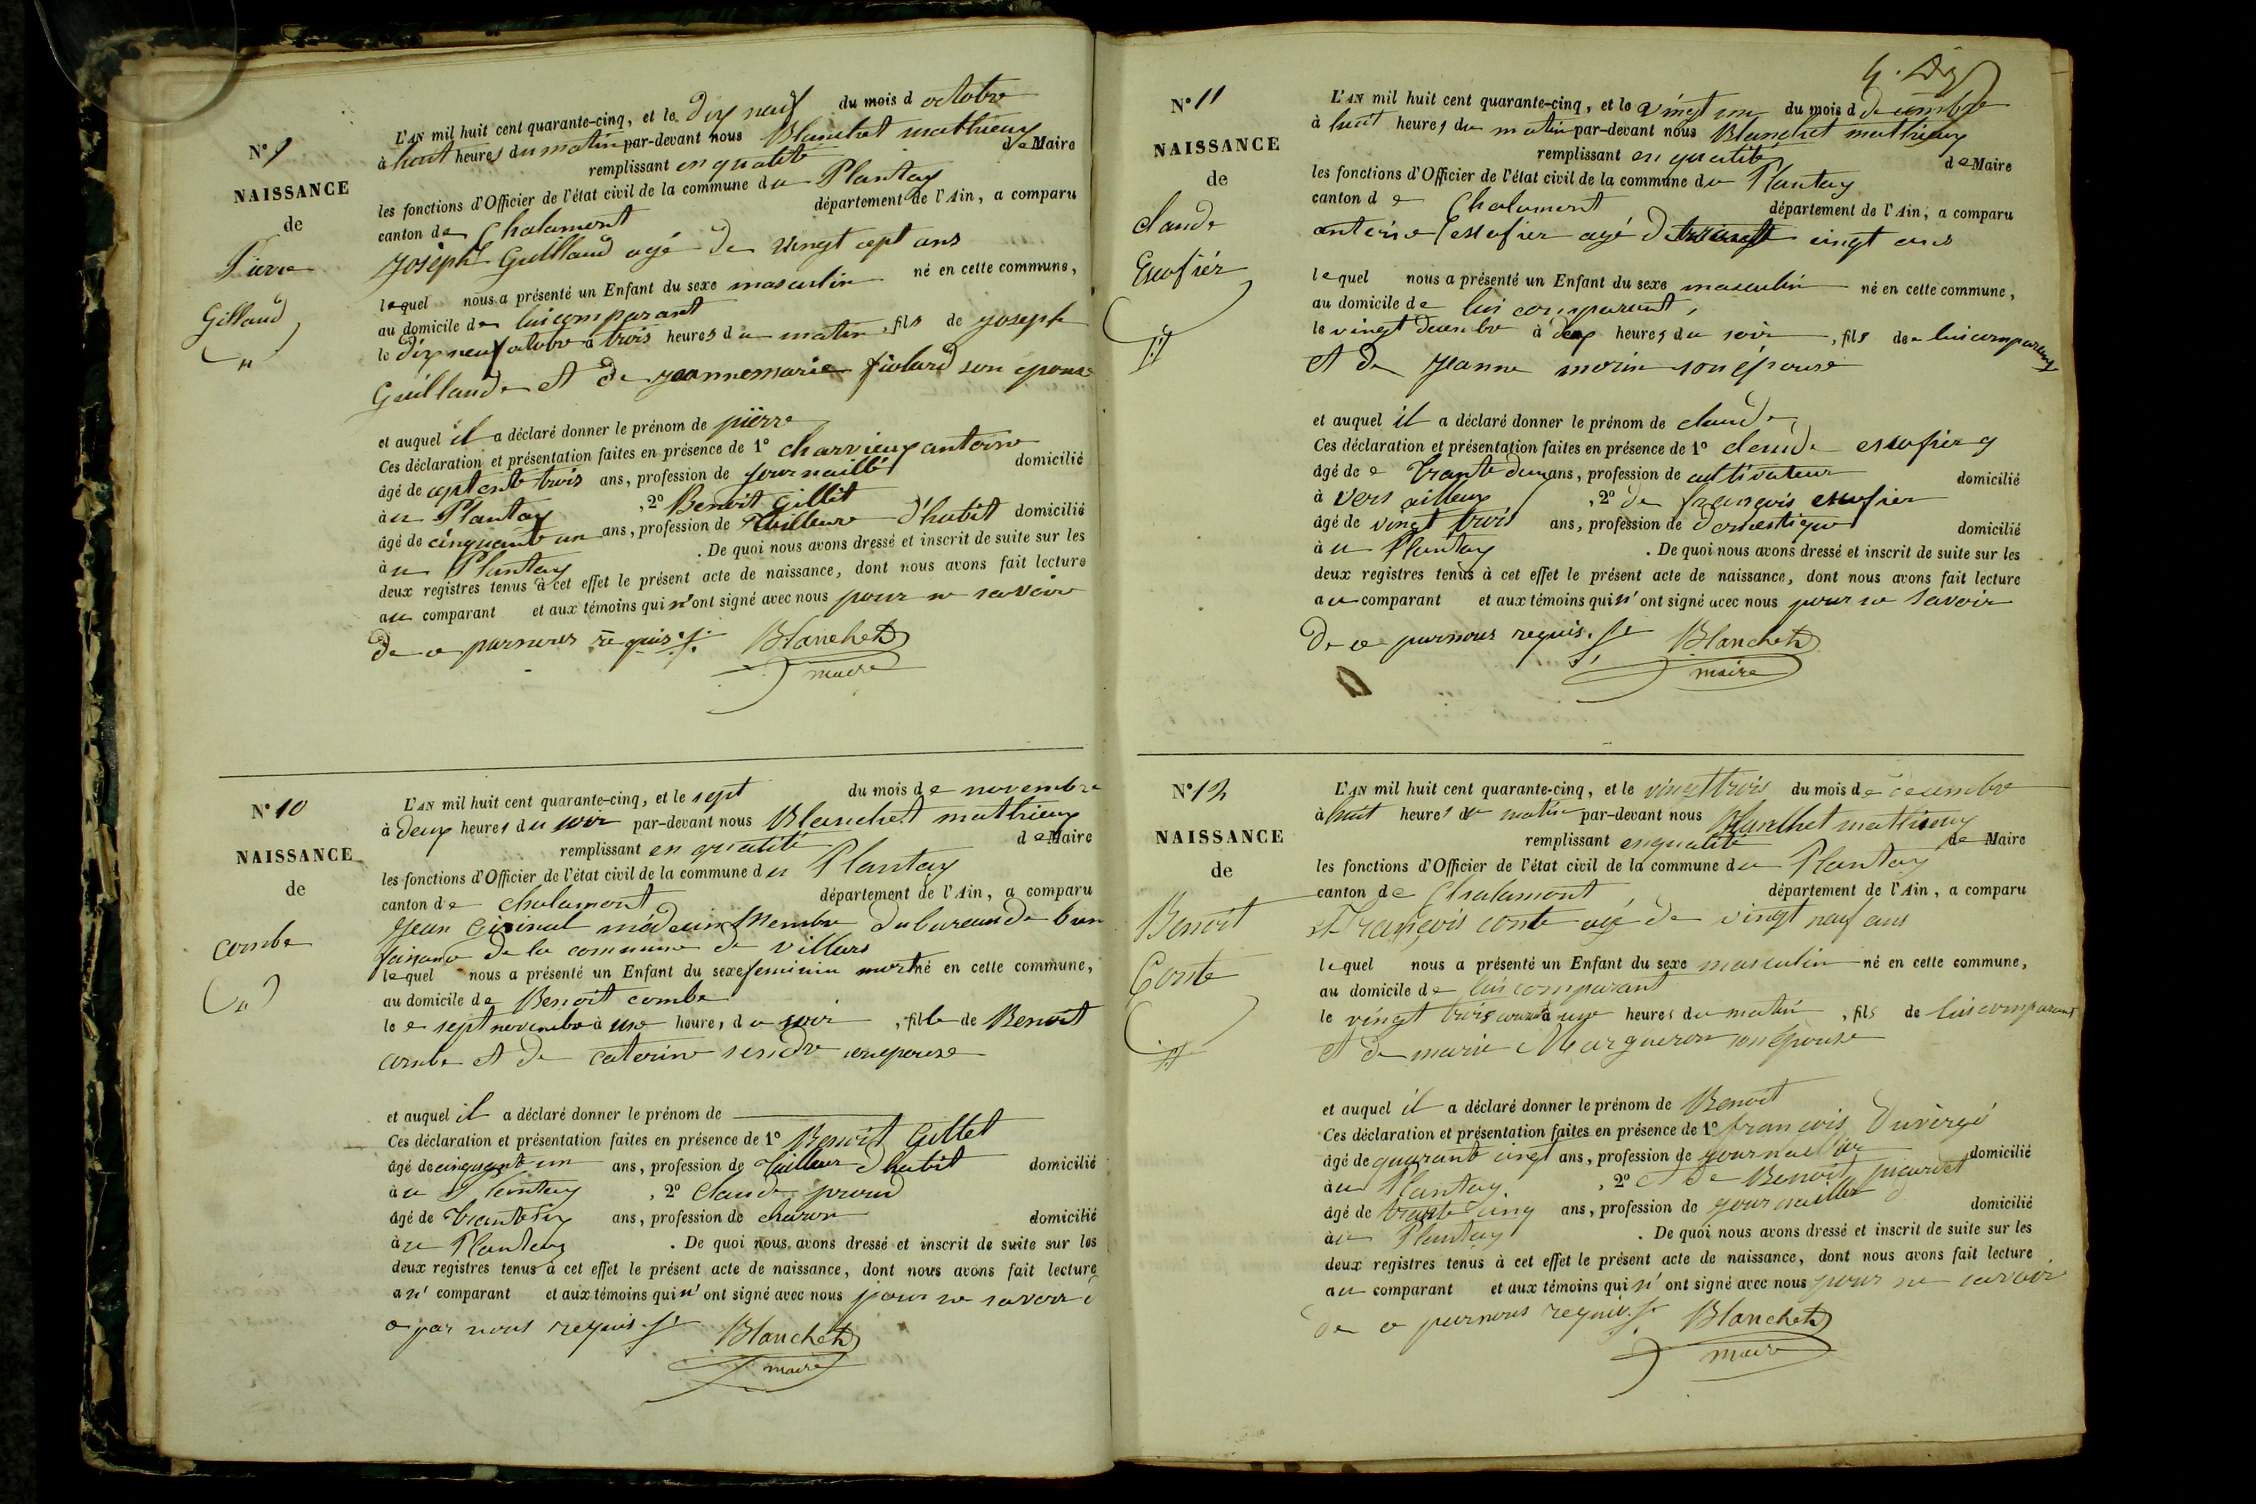 N° 9
NAISSANCE
de
Pierre
Gilland
L'AN mil huit cent quarante-cinq, et le dix neuf du mois d octobre
à huit heures du matin par-devant nous Blanchet mathieux
remplissant en qualité de Maire
les fonctions d'Officier de l'état civil de la commune du Plantay
canton de Chalamont département de l'Ain, a comparu
joseph Guilland agé de vingt sept ans
lequel nous a présenté un Enfant du sexe masculin né en cette commune,
au domicile de lui comparant
le dix neuf octobre à trois heures du matin, fils de joseph
Guillande et de jeannemarie fiolard son épouse
et auquel il a déclaré donner le prénom de pierre
Ces déclaration et présentation faites en présence de 1° charvieux antoine
âgé de septente trois ans, profession de journaillé domicilié
à u Plantay, 2° Benoit Gillet
âgé de cinquante un ans, profession de Tailleure d'habit domicilié
à u Plantay. De quoi nous avons dressé et inscrit de suite sur les
deux registres tenus à cet effet le présent acte de naissance, dont nous avons fait lecture
au comparant et aux témoins qui n'ont signé avec nous pour ne savoir
de ce parnous requis.
Blanchet
maire
N° 10
NAISSANCE
de
combe
L'AN mil huit cent quarante-cinq, et le sept du mois de novembre
à deux heures du soir par-devant nous Blanchet mathieux
remplissant en qualité de Maire
les fonctions d'Officier de l'état civil de la commune du Plantay
canton de chalamont département de l'Ain, a comparu
Jean médecin Membre du bureau de bien
faisance de la commune de villars
lequel nous a présenté un Enfant du sexe feminin mort né en cette commune,
au domicile de Benoit combe
le sept novembre à une heure, du soir, fille de Benoit
combe et de caterine sendre son epouse
et auquel il a déclaré donner le prénom de
Ces déclaration et présentation faites en présence de 1° Benoit Gillet
âgé de cinquante un ans, profession de Tailleur d'habit domicilié
à u Plantay, 2° Claude proud
âgé de trante six ans, profession de charon domicilié
à u Plantay. De quoi nous avons dressé et inscrit de suite sur les
deux registres tenus à cet effet le présent acte de naissance, dont nous avons fait lecture
au comparant et aux témoins qui n'ont signé avec nous pour ne savoir d
ce par nous requis
Blanchet
maire
N° 11
NAISSANCE
de
claude
Escofiér
L'AN mil huit cent quarante-cinq, et le vingt un du mois d decembre
à huit heures du matin par-devant nous Blanchet mathieux
remplissant en qualité de Maire
les fonctions d'Officier de l'état civil de la commune du Plantay
canton de Chalamont département de l'Ain, a comparu
antoine escofier agé de cinqt ans
lequel nous a présenté un Enfant du sexe masculin né en cette commune,
au domicile de lui comparant,
le vingt decembre à deux heures du soir, fils de lui comparant
et de jeanne morin son épouse
et auquel il a déclaré donner le prénom de claude
Ces déclaration et présentation faites en présence de 1° claude escofier
âgé de trante deux ans, profession de cultivateur domicilié
à Versailleux, 2° de francois escofier
âgé de vingt trois ans, profession de domestique domicilié
à u Plantay. De quoi nous avons dressé et inscrit de suite sur les
deux registres tenus à cet effet le présent acte de naissance, dont nous avons fait lecture
au comparant et aux témoins qui n'ont signé avec nous pour ne savoir
de ce parnous requis.
Blanchet
maire
N° 12
NAISSANCE
de
Benoit
Conte
L'AN mil huit cent quarante-cinq, et le vingt trois du mois de decembre
à huit heures du matin par-devant nous Blanchet mathieux
remplissant en qualité de Maire
les fonctions d'Officier de l'état civil de la commune du Plantay
canton de Chalamont département de l'Ain, a comparu
François conte agé de vingt neuf ans
lequel nous a présenté un Enfant du sexe masculin né en cette commune,
au domicile de lui comparant
le vingt trois courant à une heures du matin, fils de lui comparant
et de marie Margueron son épouse
et auquel il a déclaré donner le prénom de Benoit
Ces déclaration et présentation faites en présence de 1° françois Duvirgé
âgé de quarante cinqt ans, profession de journallier domicilié
à u Plantay, 2° et de Benoit picardet
âgé de trante cinq ans, profession de journaillier domicilié
à u Plantay. De quoi nous avons dressé et inscrit de suite sur les
deux registres tenus à cet effet le présent acte de naissance, dont nous avons fait lecture
au comparant et aux témoins qui n'ont signé avec nous pour ne savoir
de ce parnous requis.
Blanchet
maire